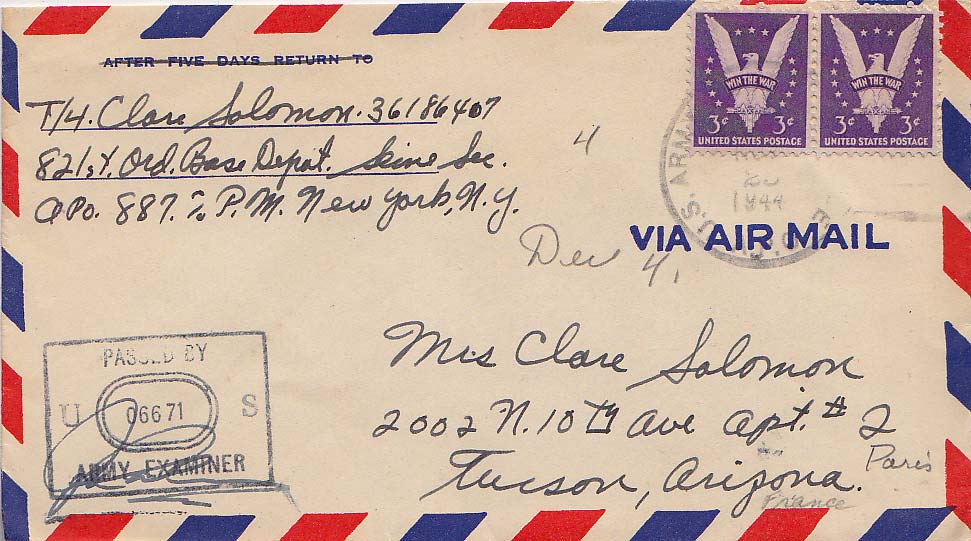 AFTER FIVE DAYS RETURN TO
T/4. Clare Solomon. 36186407
821st. Ord. Base Depot. Seine Sec.
APo. 887. ℅ P.M. New York, N.Y.
WIN THE WAR
3¢ 3¢
UNITED STATES POSTAGE
WIN THE WAR
3¢ 3¢
UNITED STATES POSTAGE
U.S. ARMY
1944
4
VIA AIR MAIL
Dec 4,
PASSED BY
U 06671 S
ARMY EXAMINER
Mrs Clare Solomon
2002 N. 10th Ave Apt. # 2
Tucson, Arizona.
Paris
France